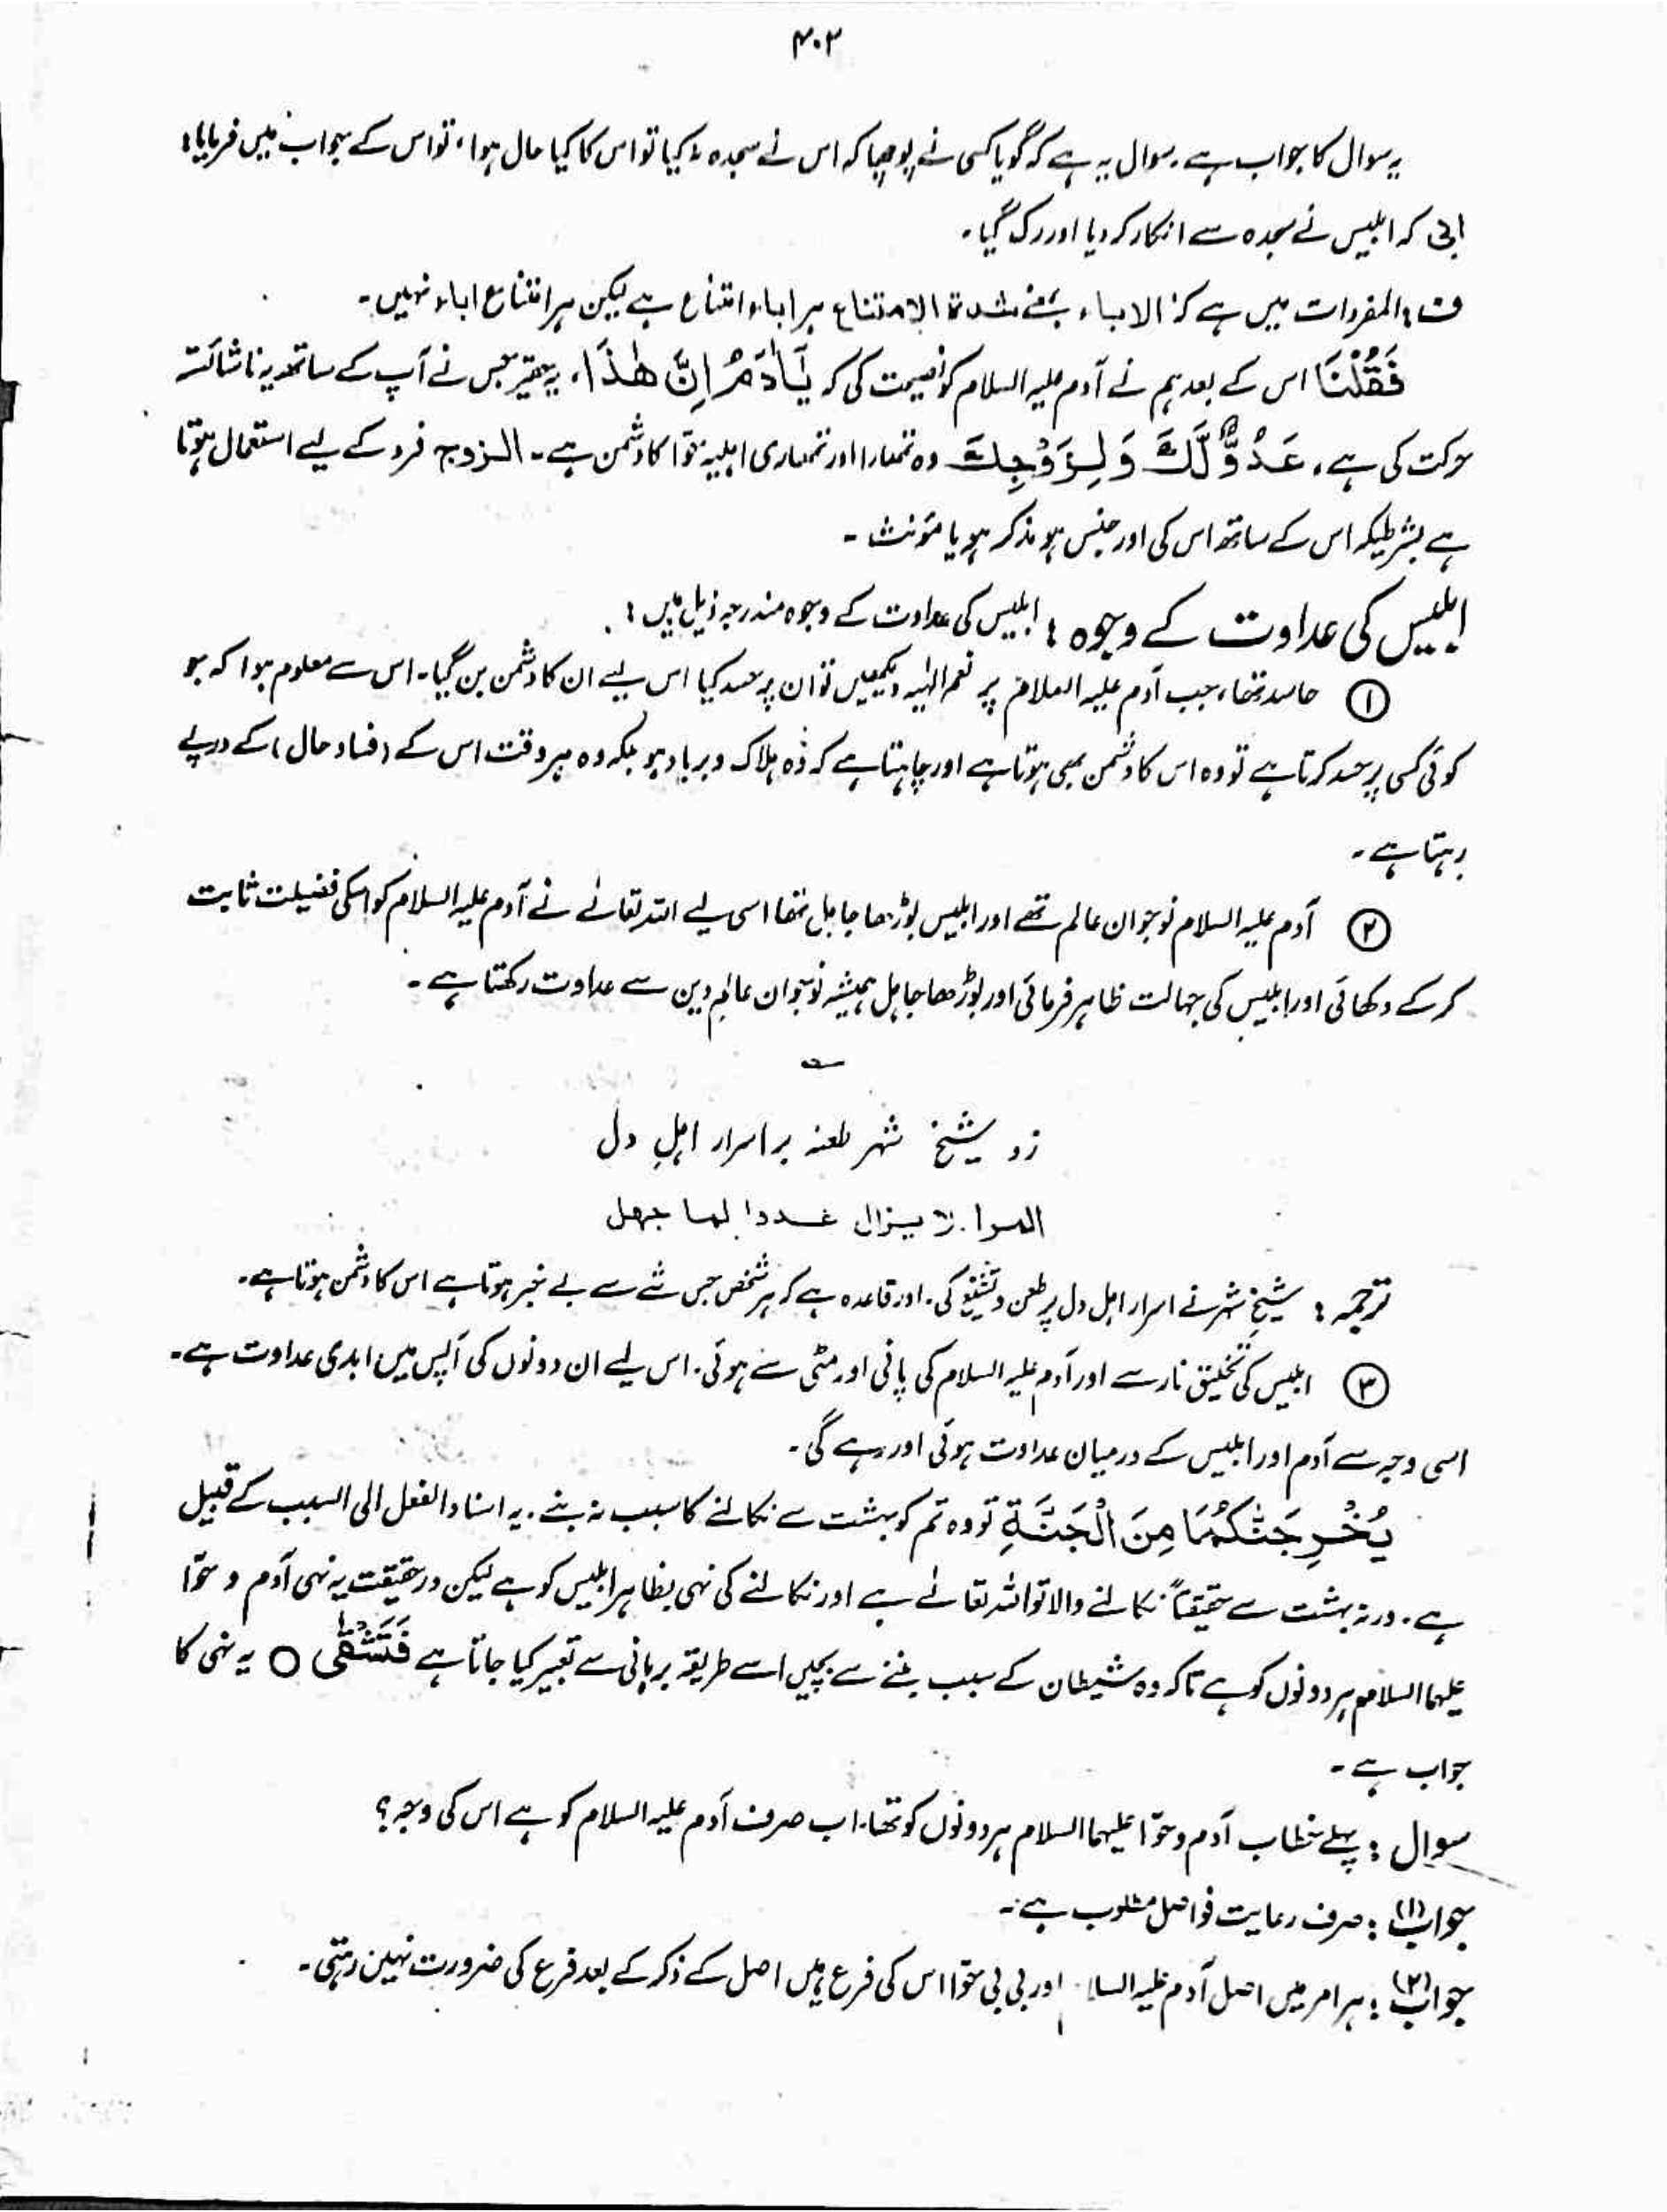 ۴۰۲
یہ سوال کا جواب ہے۔ سوال یہ ہے کہ گویا کسی نے پوچھا کہ اس نے سجدہ نہ کیا تو اس کا کیا حال ہوا، تو اس کے جواب میں فرمایا:
ابٰی کہ ابلیس نے سجدہ سے انکار کر دیا اور رک گیا۔
ف: المفردات میں ہے کہ الاباء بمعنے شدۃ الامتناع ہر اباء امتناع ہے لیکن ہر امتناع اباء نہیں۔
فَقُلْنَا اس کے بعد ہم نے آدم علیہ السلام کو نصیحت کی کہ یٰٓاٰدَمُ اِنَّ هٰذَا، یہ حقیر جس نے آپ کے ساتھ یہ ناشائستہ
حرکت کی ہے، عَدُوٌّ لَّكَ وَلِزَوْجِكَ وہ تمھارا اور تمھاری اہلیہ حوّا کا دشمن ہے۔ الزوج فرد کے لیے استعمال ہوتا
ہے بشرطیکہ اس کے ساتھ اس کی اور جنس ہو مذکر ہو یا مؤنث۔
ابلیس کی عداوت کے وجوہ : ابلیس کی عداوت کے وجوہ مندرجہ ذیل ہیں :
① حاسد تھا، جب آدم علیہ السلام پر نعم الٰہیہ دیکھیں تو ان پر حسد کیا اس لیے ان کا دشمن بن گیا۔ اس سے معلوم ہوا کہ جو
کوئی کسی پر حسد کرتا ہے تو وہ اس کا دشمن بھی ہوتا ہے اور چاہتا ہے کہ وُہ ہلاک و برباد ہو بلکہ وہ ہر وقت اس کے (فساد حال) کے درپے
رہتا ہے۔
② آدم علیہ السلام نوجوان عالم تھے اور ابلیس بوڑھا جاہل تھا اسی لیے اللہ تعالٰے نے آدم علیہ السلام کو اسکی فضیلت ثابت
کر کے دکھائی اور ابلیس کی جہالت ظاہر فرمائی اور بوڑھا جاہل ہمیشہ نوجوان عالمِ دین سے عداوت رکھتا ہے۔
زد شیخ شہر طعنہ بر اسرار اہلِ دل
المرا۔ لا یزال عددا لما جھل
ترجمہ : شیخِ شہر نے اسرار اہل دل پر طعن و تشنیع کی۔ اور قاعدہ ہے کہ ہر شخص جس شے سے بے خبر ہوتا ہے اس کا دشمن ہوتا ہے۔
③ ابلیس کی تخلیق نار سے اور آدم علیہ السلام کی پانی اور مٹی سے ہوئی۔ اس لیے ان دونوں کی آپس میں ابدی عداوت ہے۔
اسی وجہ سے آدم اور ابلیس کے درمیان عداوت ہوئی اور رہے گی۔
یُخْرِجَنَّكُمَا مِنَ الْجَنَّةِ تو وہ تم کو بہشت سے نکالنے کا سبب نہ بنے۔ یہ اسناد الفعل الی السبب کے قبیل
ہے۔ ورنہ بہشت سے حقیقتاً نکالنے والا تو اللہ تعالٰے ہے اور نکالنے کی نہی بظاہر ابلیس کو ہے لیکن درحقیقت یہ نہی آدم و حوّا
علیہما السلام ہر دونوں کو ہے تاکہ وہ شیطان کے سبب بننے سے بچیں اسے طریقہ برہانی سے تعبیر کیا جاتا ہے فَتَشْقٰی ○ یہ نہی کا
جواب ہے۔
سوال : پہلے خطاب آدم و حوّا علیہما السلام ہر دونوں کو تھا۔ اب صرف آدم علیہ السلام کو ہے اس کی وجہ؟
جواب (۱) : صرف رعایت فواصل مطلوب ہے۔
جواب (۲) : ہر امر میں اصل آدم علیہ السلا اور بی بی حوّا اس کی فرع ہیں اصل کے ذکر کے بعد فرع کی ضرورت نہیں رہتی۔